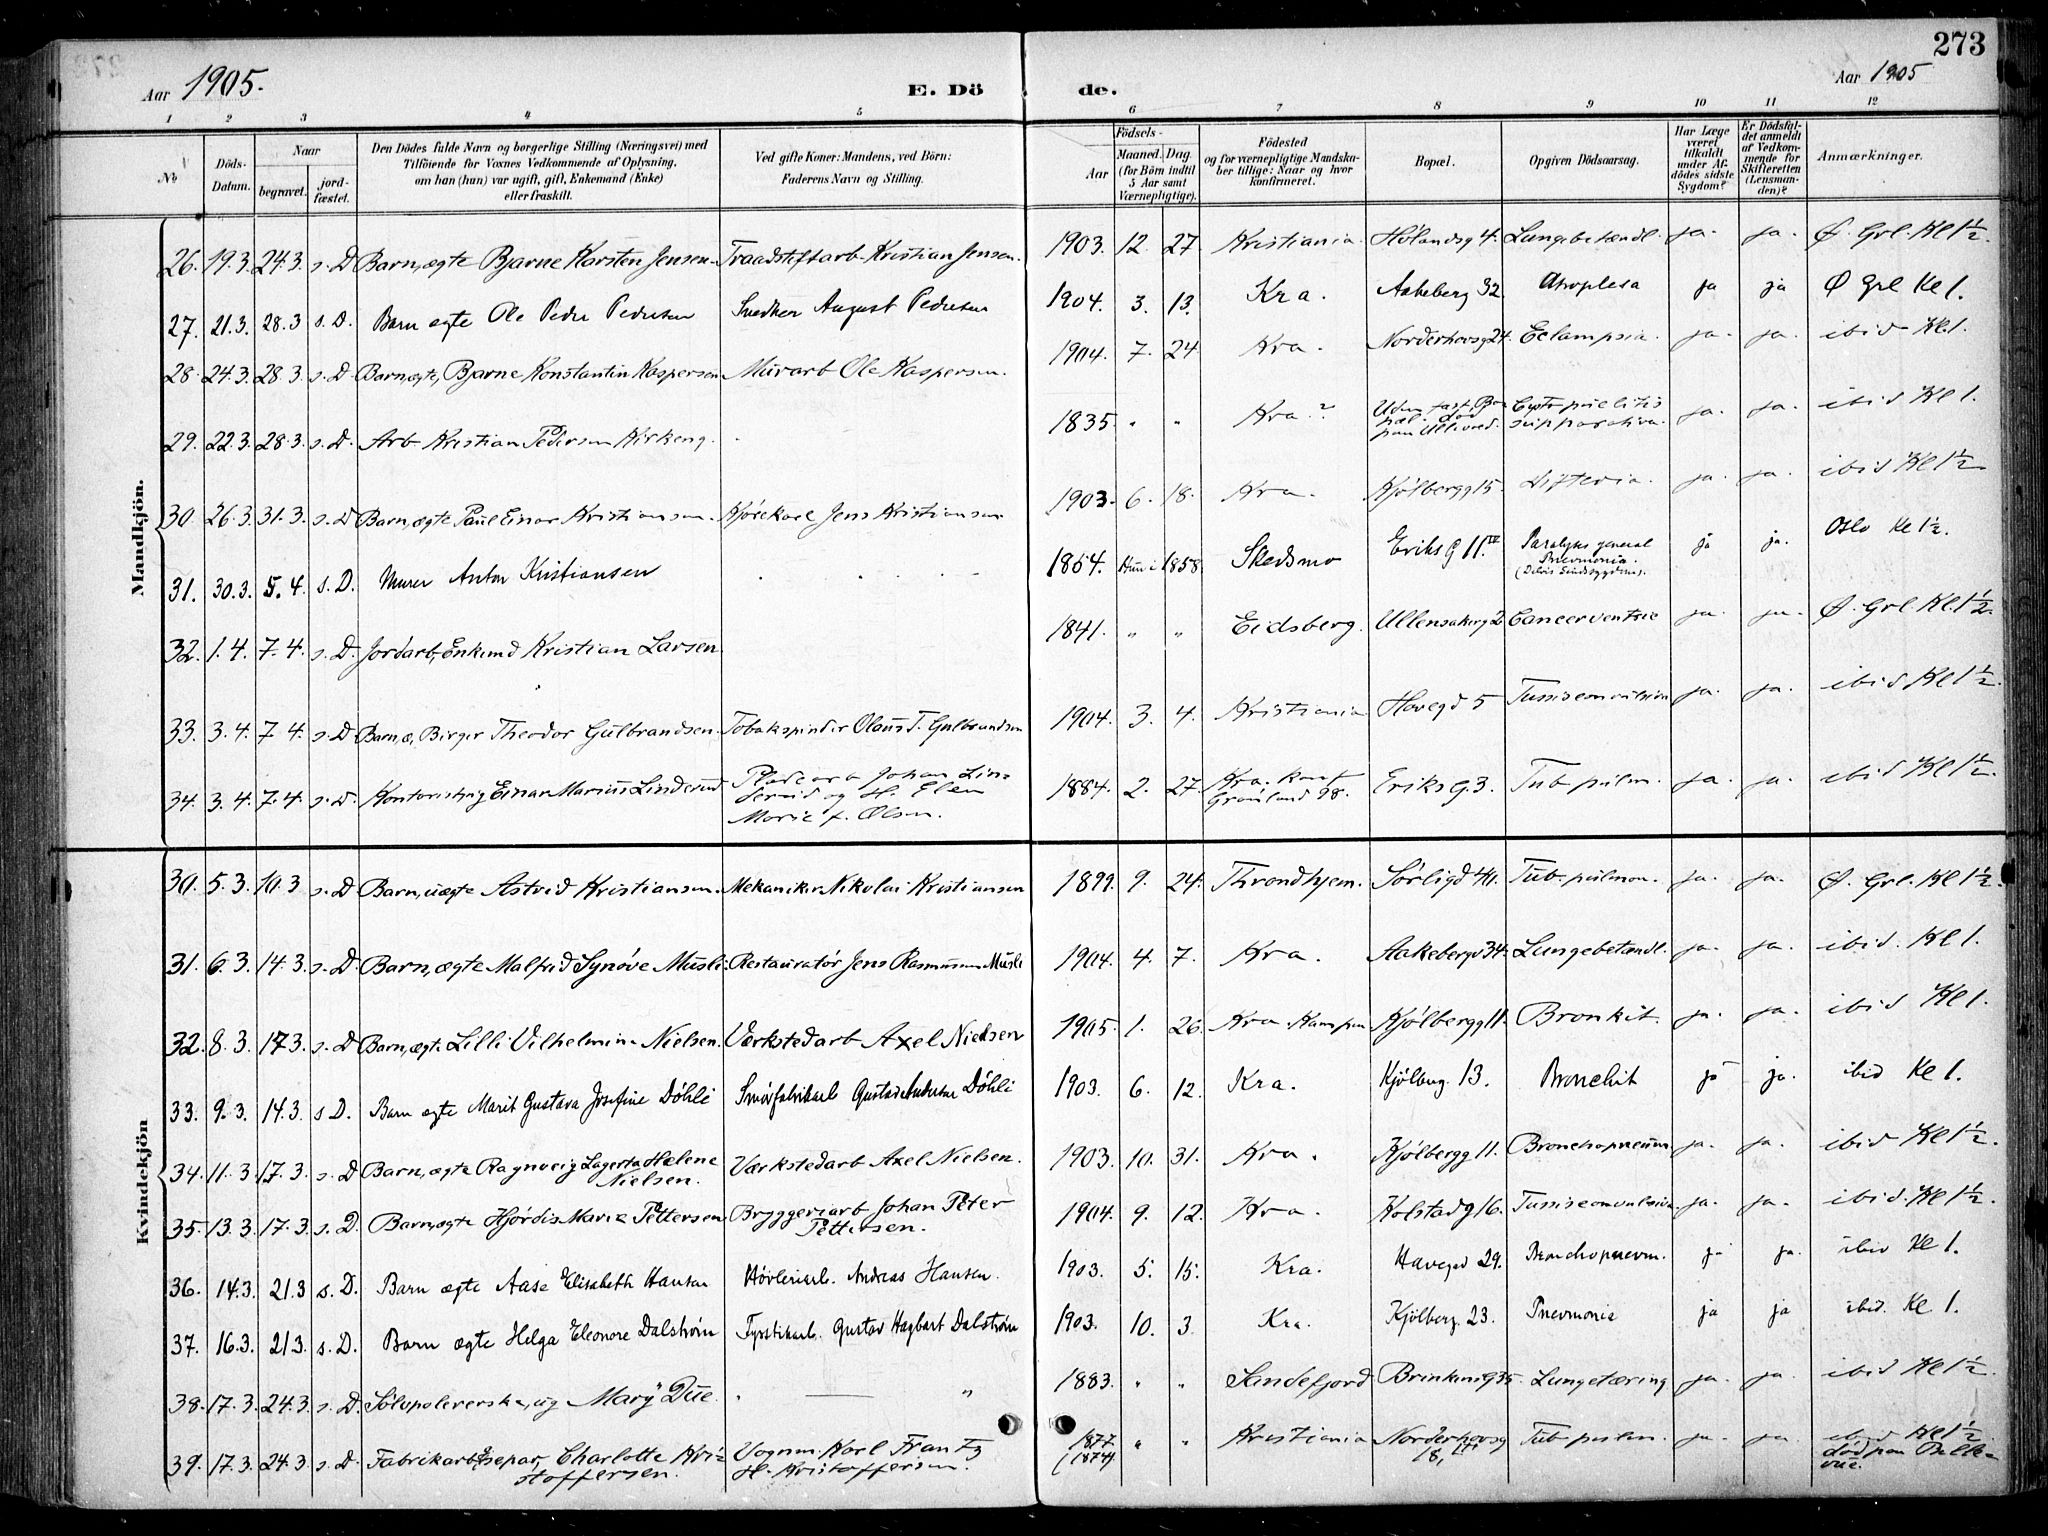 273
Aar 1905.
E. Dö de.
Aar 1905
1 2 3 4 5 6 7 8 9 10 11 12
No
Döds-Datum.
Naar
begravet.
jordfæstet.
Den Dödes fulde Navn og borgerlige Stilling (Næringsvei) med
Tilföiende for Voxnes Vedkommende af Oplysning,
om han (hun) var ugift, gift, Enkemand (Enke)
eller fraskilt.
Ved gifte Koner: Mandens, ved Börn:
Faderens Navn og Stilling.
Födsels-
Aar
Maaned. Dag
(for Börn indtil
5 Aar samt
Værnepligtige).
Födested
og for værnepligtige Mandskaber tillige: Naar og hvor
konfirmeret.
Bopæl.
Opgiven Dödsaarsag.
Har Læge været tilkaldt under Afdödes sidste Sygdom?
Er Dödsfaldet anmeldt af Vedkommende for Skifteretten (Lensmanden)?
Anmærkninger.
Mandkjön.
26. 19.3. 24.3. s. D. Barn, ægte Bjarne Karsten Jensen. Traadstiftarb. Kristian Jensen. 1903. 12. 27. Kristiania. Hølandsg 4. Lungebetændl. ja. ja. Ø. Grl. Kl 1½.
27. 21.3. 28.3 s. D. Barn ægte Ole Peder Pedersen Snedker August Pedersen 1904. 3. 13. Kra. Aakeberg 32. ja ja Ø Grl Kl 1.
28. 24.3. 28.3. s. D. Barn, ægte, Bjarne Konstantin Kaspersen Murarb Ole Kaspersen. 1904. 7. 24 Kra. Norderhovsg 24. Eclampsia. ja. ja. ibid Kl. 1.
29. 22.3. 28.3. s. D. Arb Kristian Pedersen Kirkeng. 1835. " " Kra.? Uden fast Bopæl. død paa Ullevaal. Cysto puelitis supparativa. ja. ja. ibid Kl 1.
30 26.3. 31.3. s. D Barn, ægte Paul Einar Kristiansen. Kjørekarl Jens Kristiansen 1903. 6. 18. Kra. Kjølbergg 15. Difteria. ja. ja. ibid Kl 1½
31. 30.3. 5.4. s. D. Murer Anton Kristiansen 1854. 1858 Skedsmo Eriks G 11. IV Paralyse general Pnevmonia. ja ja. Oslo Kl 1½.
32. 1.4. 7.4. s. D. Jordarb, Enkemd Kristian Larsen 1841. " " Eidsberg. Ullensakerg 2 Cancer ventric ja. ja. Ø. Grl. Kl. 1½.
33. 3.4. 7.4. s. D Barn, æ, Birger Theodor Gulbrandsen. Tobakspinder Olaus T. Gulbrandsen 1904. 3. 4. Kristiania Havegd 5 Tussis convulsiva ja. ja. ibid Kl 1½.
34. 3.4. 7.4. s. D. Kontorist, ug Einar Marius Linderud Johan Linderud og H. Elen Marie f. Olsen. 1884. 2. 27. Kra. konf Grønland 98. Eriks G. 3. Tub. pulm. ja. ja. ibid Kl 1½.
Kvindekjön
30. 5.3. 10.3 s. D Barn, uægte Astrid Kristiansen. Mekaniker Nikolai Kristiansen 1899. 9. 24. Throndhjem. Sørligd 40. Tub. pulmon. ja. ja. Ø. Grl. Kl 1½.
31. 6.3. 14.3. s. D. Barn, ægte Malfrid Synøve Musli Restauratør Jens Rasmussen Musli 1904. 4. 7. Kra. Aakebergv 34. Lungebetændl. ja. ja. ibid. Kl 1.
32. 8.3. 17.3. s. D Barn, ægte Lilli Vilhelmine Nielsen. Værkstedarb Axel Nielsen 1905. 1. 26. Kra. Kampen Kjølbergg 11. Bronkit. ja. ja. ibid Kl 1.
33. 9.3. 14.3. s D. Barn ægte Marit Gustava Josefine Döhli Smörfabrikarb. Gustav Andersen Döhli 1903. 6. 12. Kra. Kjölberg. 13. Bronchit ja ja. ibid Kl 1.
34. 11.3. 17.3. s. D Barn, ægte Ragnveig Lagerta Halene Nielsen. Værkstedarb Axel Nielsen. 1903. 10. 31. Kra. Kjølbergg 11. Bronchopneum. ja. ja. ibid Kl 1½.
35. 13.3. 17.3. s. D. Barn, ægte Hjørdis Marie Pettersen Bryggeriarb Johan Peter Pettersen. 1904. 9. 12. Kra. Kolstadg 16. Tussis convulsiva. ja. ja. ibid. Kl 1½.
36. 14.3. 21.3 s. D. Barn ægte Aase Elisabeth Hansen Høvleriarb. Andreas Hansen. 1903. 5. 15. Kra. Havegd 29. Bronchopnevm. ja ja. ibid Kl 1.
37. 16.3. 21.3. s. D. Barn ægte Helga Eleonore Dalstrøm Fyrstikarb. Gustav Hagbart Dalstrøm 1903. 10. 3. Kra. Kjölberg. 23. Pnevmonia ja ja ibid. Kl 1.
38. 17.3. 24.3. s. D. Sølvpolererske, ug Mary Due. " 1883. " " Sandefjord Brinkens G 35. Lungetæring ja. ja. ibid Kl 1½
39. 17.3. 24.3. s. D. Fabrikarb, separ, Charlotte Kristoffersen. Vognm. Karl Frantz H. Kristoffersen. 1877 (1874). " " Kristiania Norderhovsg 18, Tub. pulm. ja. ja ibid Kl 1½ død paa Bellevue.